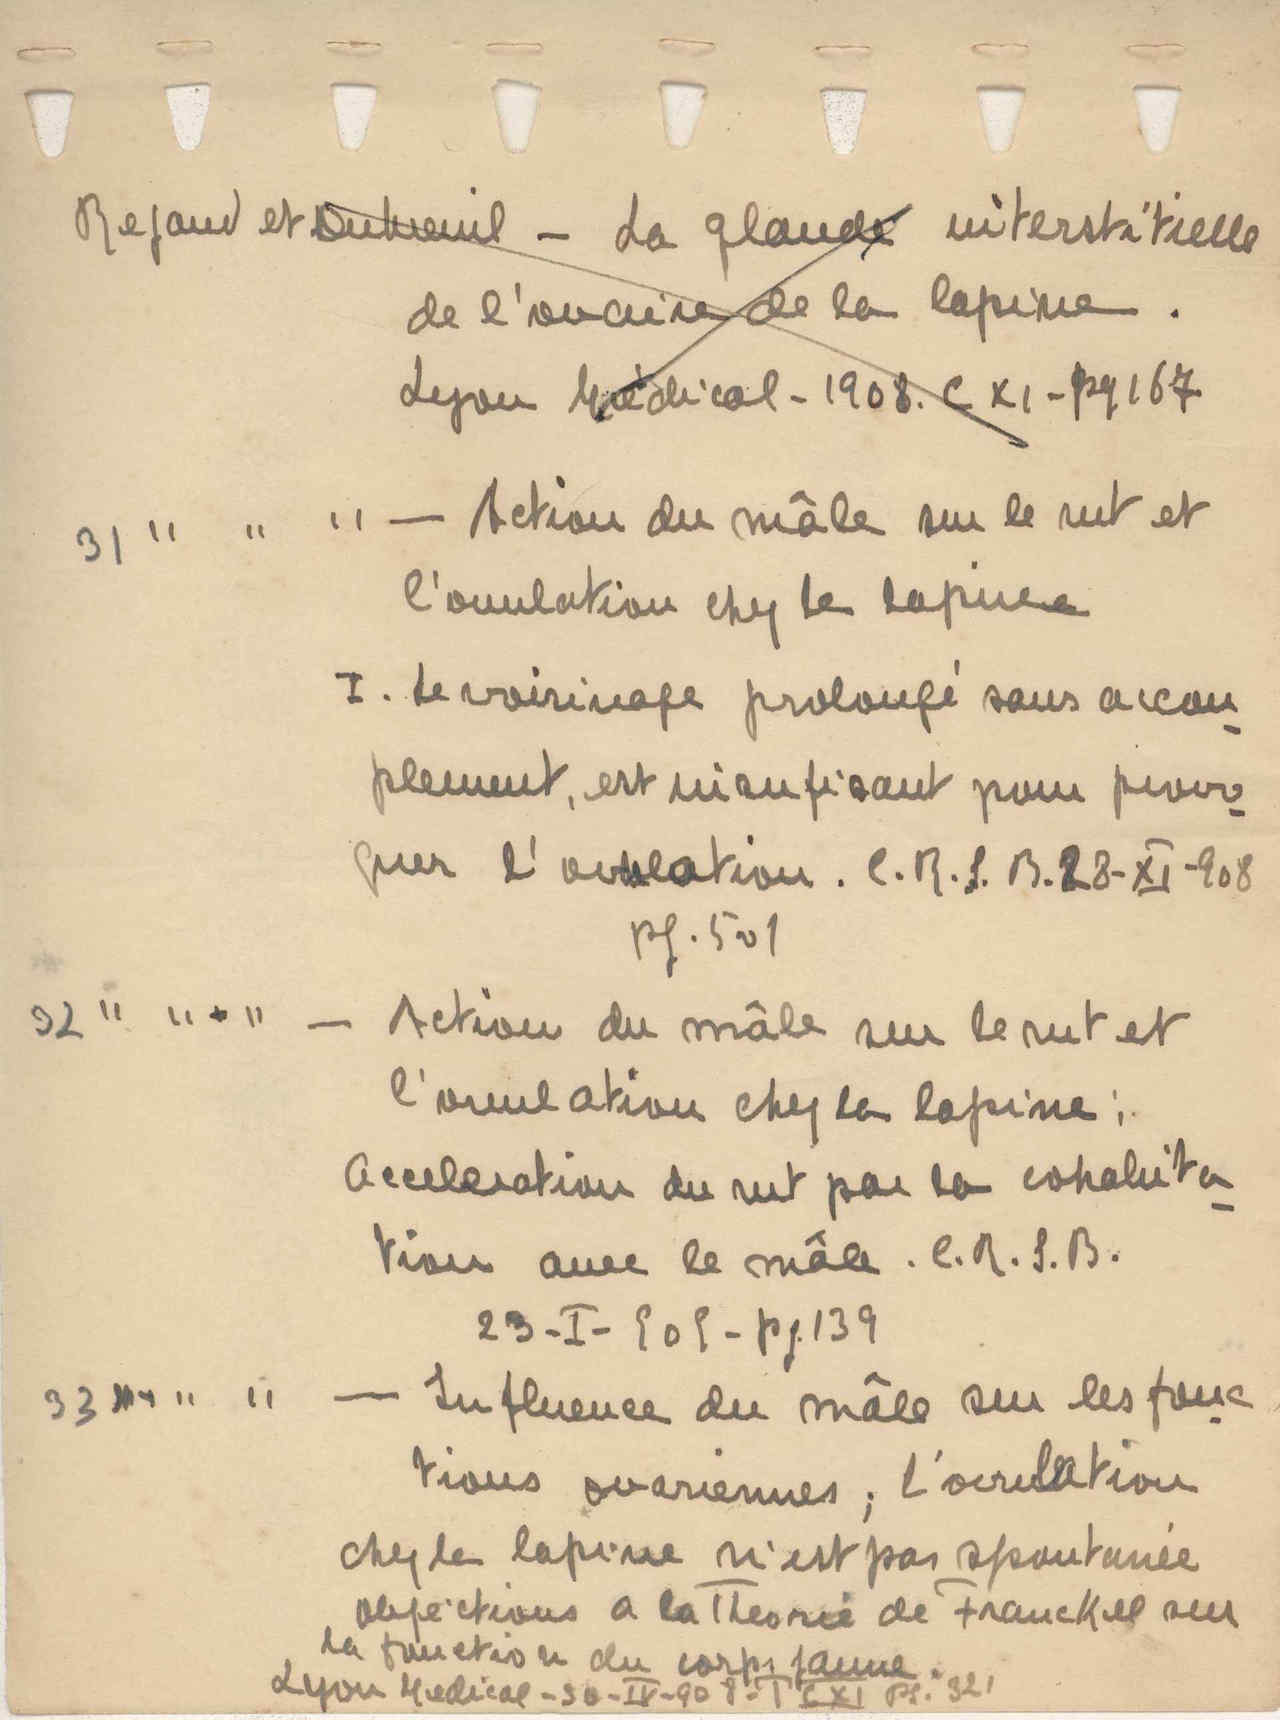 Regaud et Dubreuil - La glande interstitielle
de l'ovaire de la lapine.
Lyon Médical - 1908. CXI - pg 167
31 " " " — Action du mâle sur le rut et
l'ovulation chez la lapine
I. Le voisinage prolongé sans accou-
plement, est insufisant pour provo-
quer l'ovulation. C.R.S.B. 28-XI-908
pg. 501
32 " " " — Action du mâle sur le rut et
l'ovulation chez la lapine;
Acceleration du rut par la cohabita-
tion avec le mâle. C.R.S.B.
23-I-909 - pg. 139
33 " " — Influence du mâle sur les fonc-
tions ovariennes; L'ovulation
chez la lapine n'est pas spontanée
objections a la Theorie de Franckel sur
la fonction du corps jaune.
Lyon Medical - 30-IV-908 - T CXI pg. 321